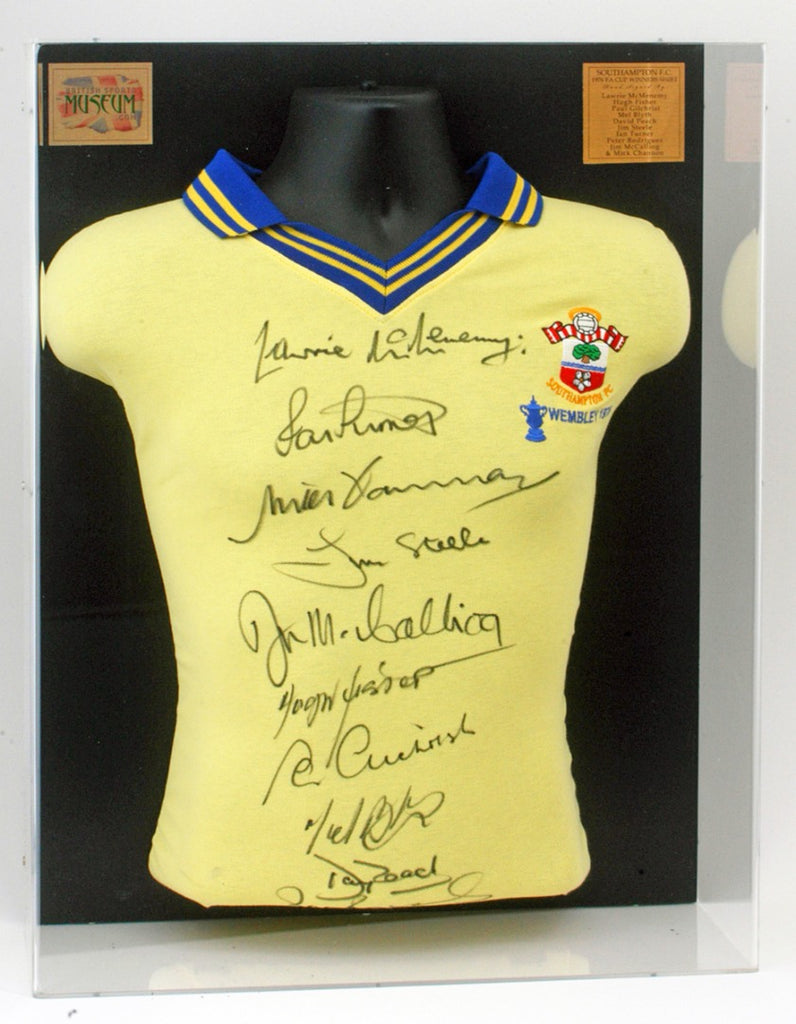 BRITISH SPORTS
MUSEUM
.COM
SOUTHAMPTON F.C.
1976 FA CUP WINNERS SHIRT
Hand Signed By
Lawrie McMenemy
Hugh Fisher
Paul Gilchrist
Mel Blyth
David Peach
Jim Steele
Ian Turner
Peter Rodrigues
Jim McCalliog
& Mick Channon
Lawrie McMenemy
SOUTHAMPTON FC
WEMBLEY 197
Ian Turner
Mick Channon
Jim Steele
Jim McCalliog
Hugh Fisher
Mel Blyth